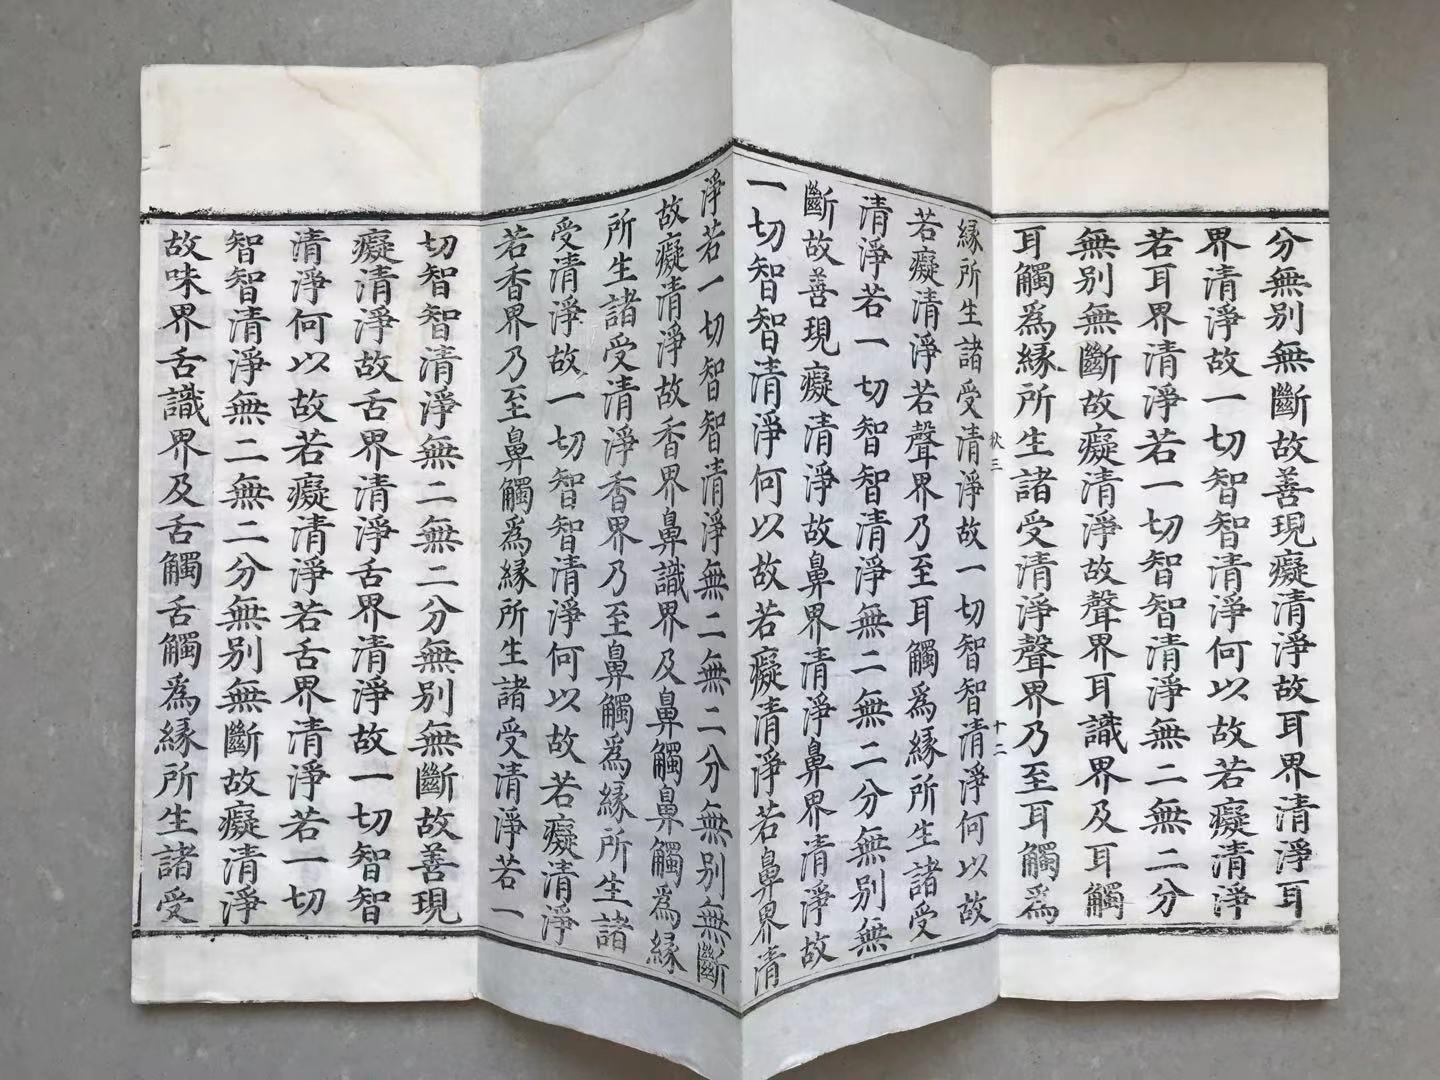 分無別無斷故善現癡清淨故耳界清淨耳
界清淨故一切智智清淨何以故若癡清淨
若耳界清淨若一切智智清淨無二無二分
無別無斷故癡清淨故聲界耳識界及耳觸
耳觸爲緣所生諸受清淨聲界乃至耳觸爲
秋三 十二
緣所生諸受清淨故一切智智清淨何以故
若癡清淨若聲界乃至耳觸爲緣所生諸受
清淨若一切智智清淨無二無二分無別無
斷故善現癡清淨故鼻界清淨鼻界清淨故
一切智智清淨何以故若癡清淨若鼻界清
淨若一切智智清淨無二無二分無別無斷
故癡清淨故香界鼻識界及鼻觸鼻觸爲緣
所生諸受清淨香界乃至鼻觸爲緣所生諸
受清淨故一切智智清淨何以故若癡清淨
若香界乃至鼻觸爲緣所生諸受清淨若一
切智智清淨無二無二分無別無斷故善現
癡清淨故舌界清淨舌界清淨故一切智智
清淨何以故若癡清淨若舌界清淨若一切
智智清淨無二無二分無別無斷故癡清淨
故味界舌識界及舌觸舌觸爲緣所生諸受